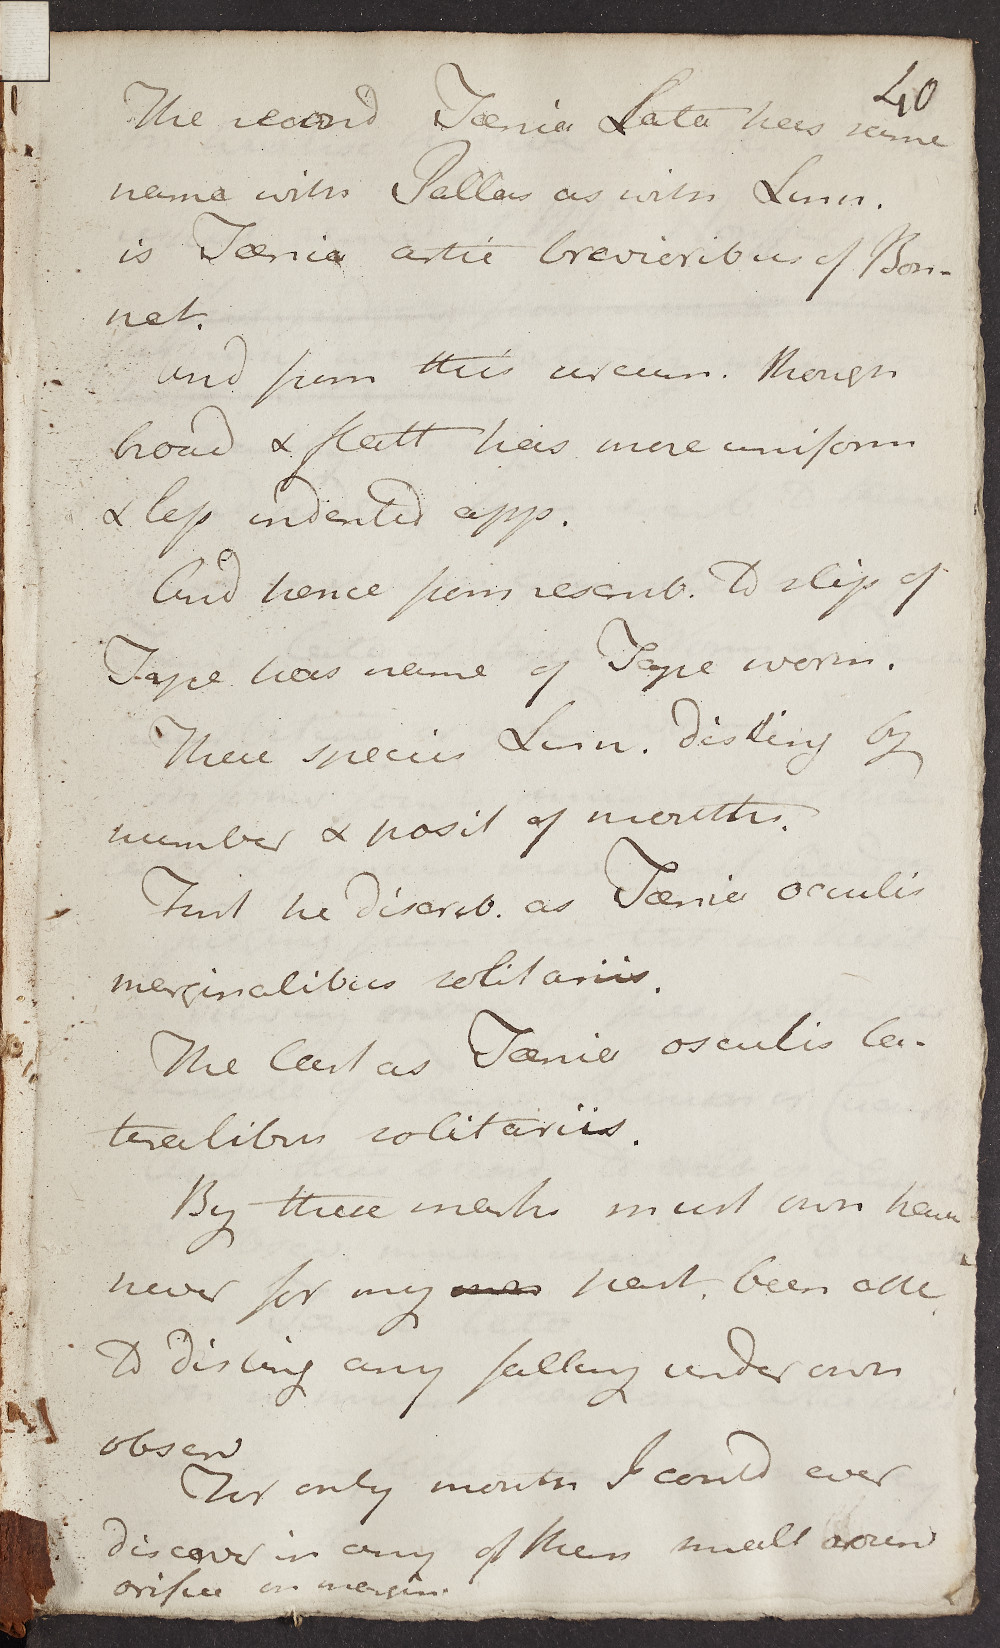 40
The second Tænia Lata has same
name with Pallas as with Linn.
is Tænia artic brevioribus of Bon-
net.
and from this circum. though
broad & flatt has more uniform
& less indented app.
And hence from resemb. to slip of
Tape has name of Tape worm.
These species Linn. disting by
number & posit of mouths.
First he discrib. as Tænia osculis
marginalibus solitariis.
The last as Tænia osculis la-
teralibus solitariis.
By these marks must own have
never for my part. been able
to disting any falling under own
observ
For only mouth I could ever
discover in any of them small round
orifice on margin.